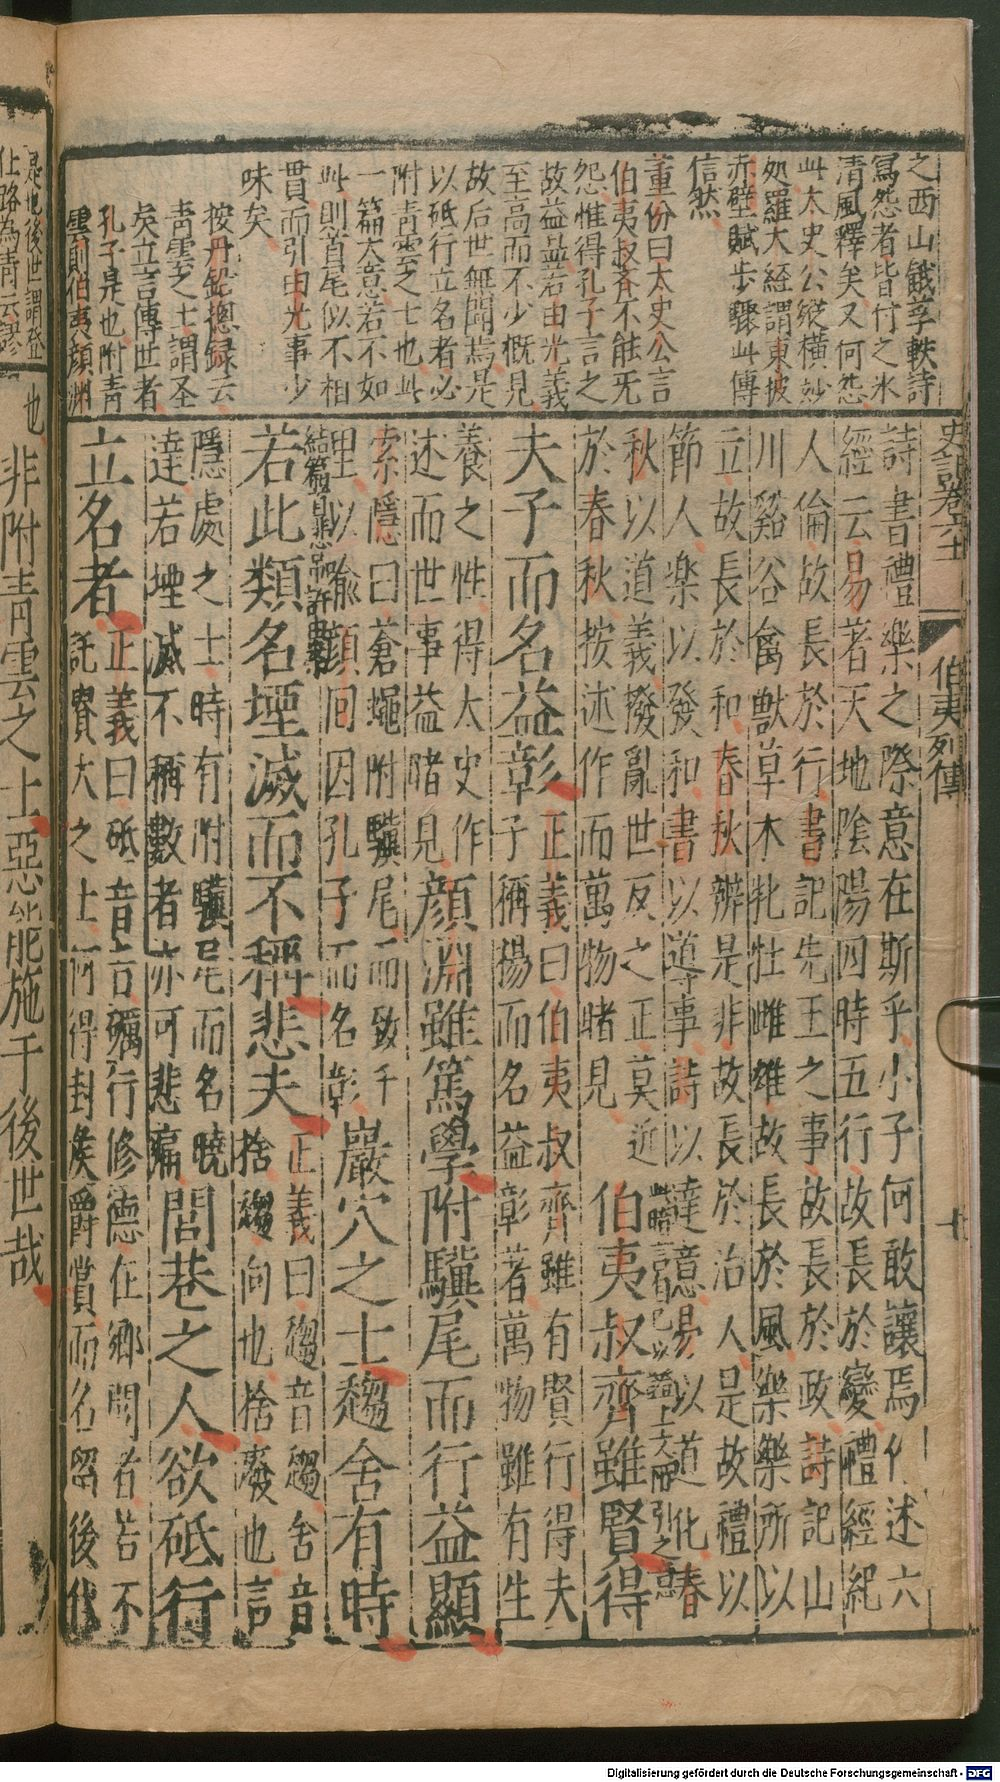 之西山餓莩軼詩
冩怨者皆付之氷
清風釋矣又何怨
此太史公縱橫妙
処羅大經謂東坡
赤壁賦步驟此傳
信然
董份曰太史公言
伯夷叔齐不能无
怨惟得孔子言之
故益显若由光義
至高而不少概見
故后世無聞焉是
以砥行立名者必
附青雲之士也此
一篇大意若不如
此則首尾似不相
貫而引由光事少
味矣
按丹鉛總録云
青雲之士謂圣
矣立言傳世者
孔子是也附青
雲則伯夷顔淵
史記卷六十一
伯夷列傳
詩書禮樂之際意在斯乎小子何敢讓焉作述六
經云易著天地陰陽四時五行故長於變禮經紀
人倫故長於行書記先王之事故長於政詩記山
川谿谷禽獸草木牝牡雌雄故長於風樂樂所以
立故長於和春秋辨是非故長於治人是故禮以
節人樂以發和書以導事詩以達意易以道化春
秋以道義撥亂世反之正莫近
於春秋按述作而萬物睹見
伯夷叔齊雖賢得
夫子而名益彰
正義曰伯夷叔齊雖有賢行得夫
子稱揚而名益彰著萬物雖有生
養之性得太史作
述而世事益睹見
顔淵雖篤學附驥尾而行益顯
索隱曰蒼蠅附驥尾而致千
里以喻顔回因孔子而名彰
巖穴之士趨舍有時
若此類名堙滅而不稱悲夫
正義曰趨音趨舍音
捨趨向也捨廢也言
隱處之士時有附驥尾而名曉
達若堙滅不稱數者亦可悲痛
閭巷之人欲砥行
立名者
正義曰砥音旨礪行修德在鄉閭者若不
託貴大之士何得封侯爵賞而名留後代
也
非附青雲之士惡能施于後世哉
是也後世謂登
仕路為青云謬
Digitalisierung gefördert durch die Deutsche Forschungsgemeinschaft - DFG